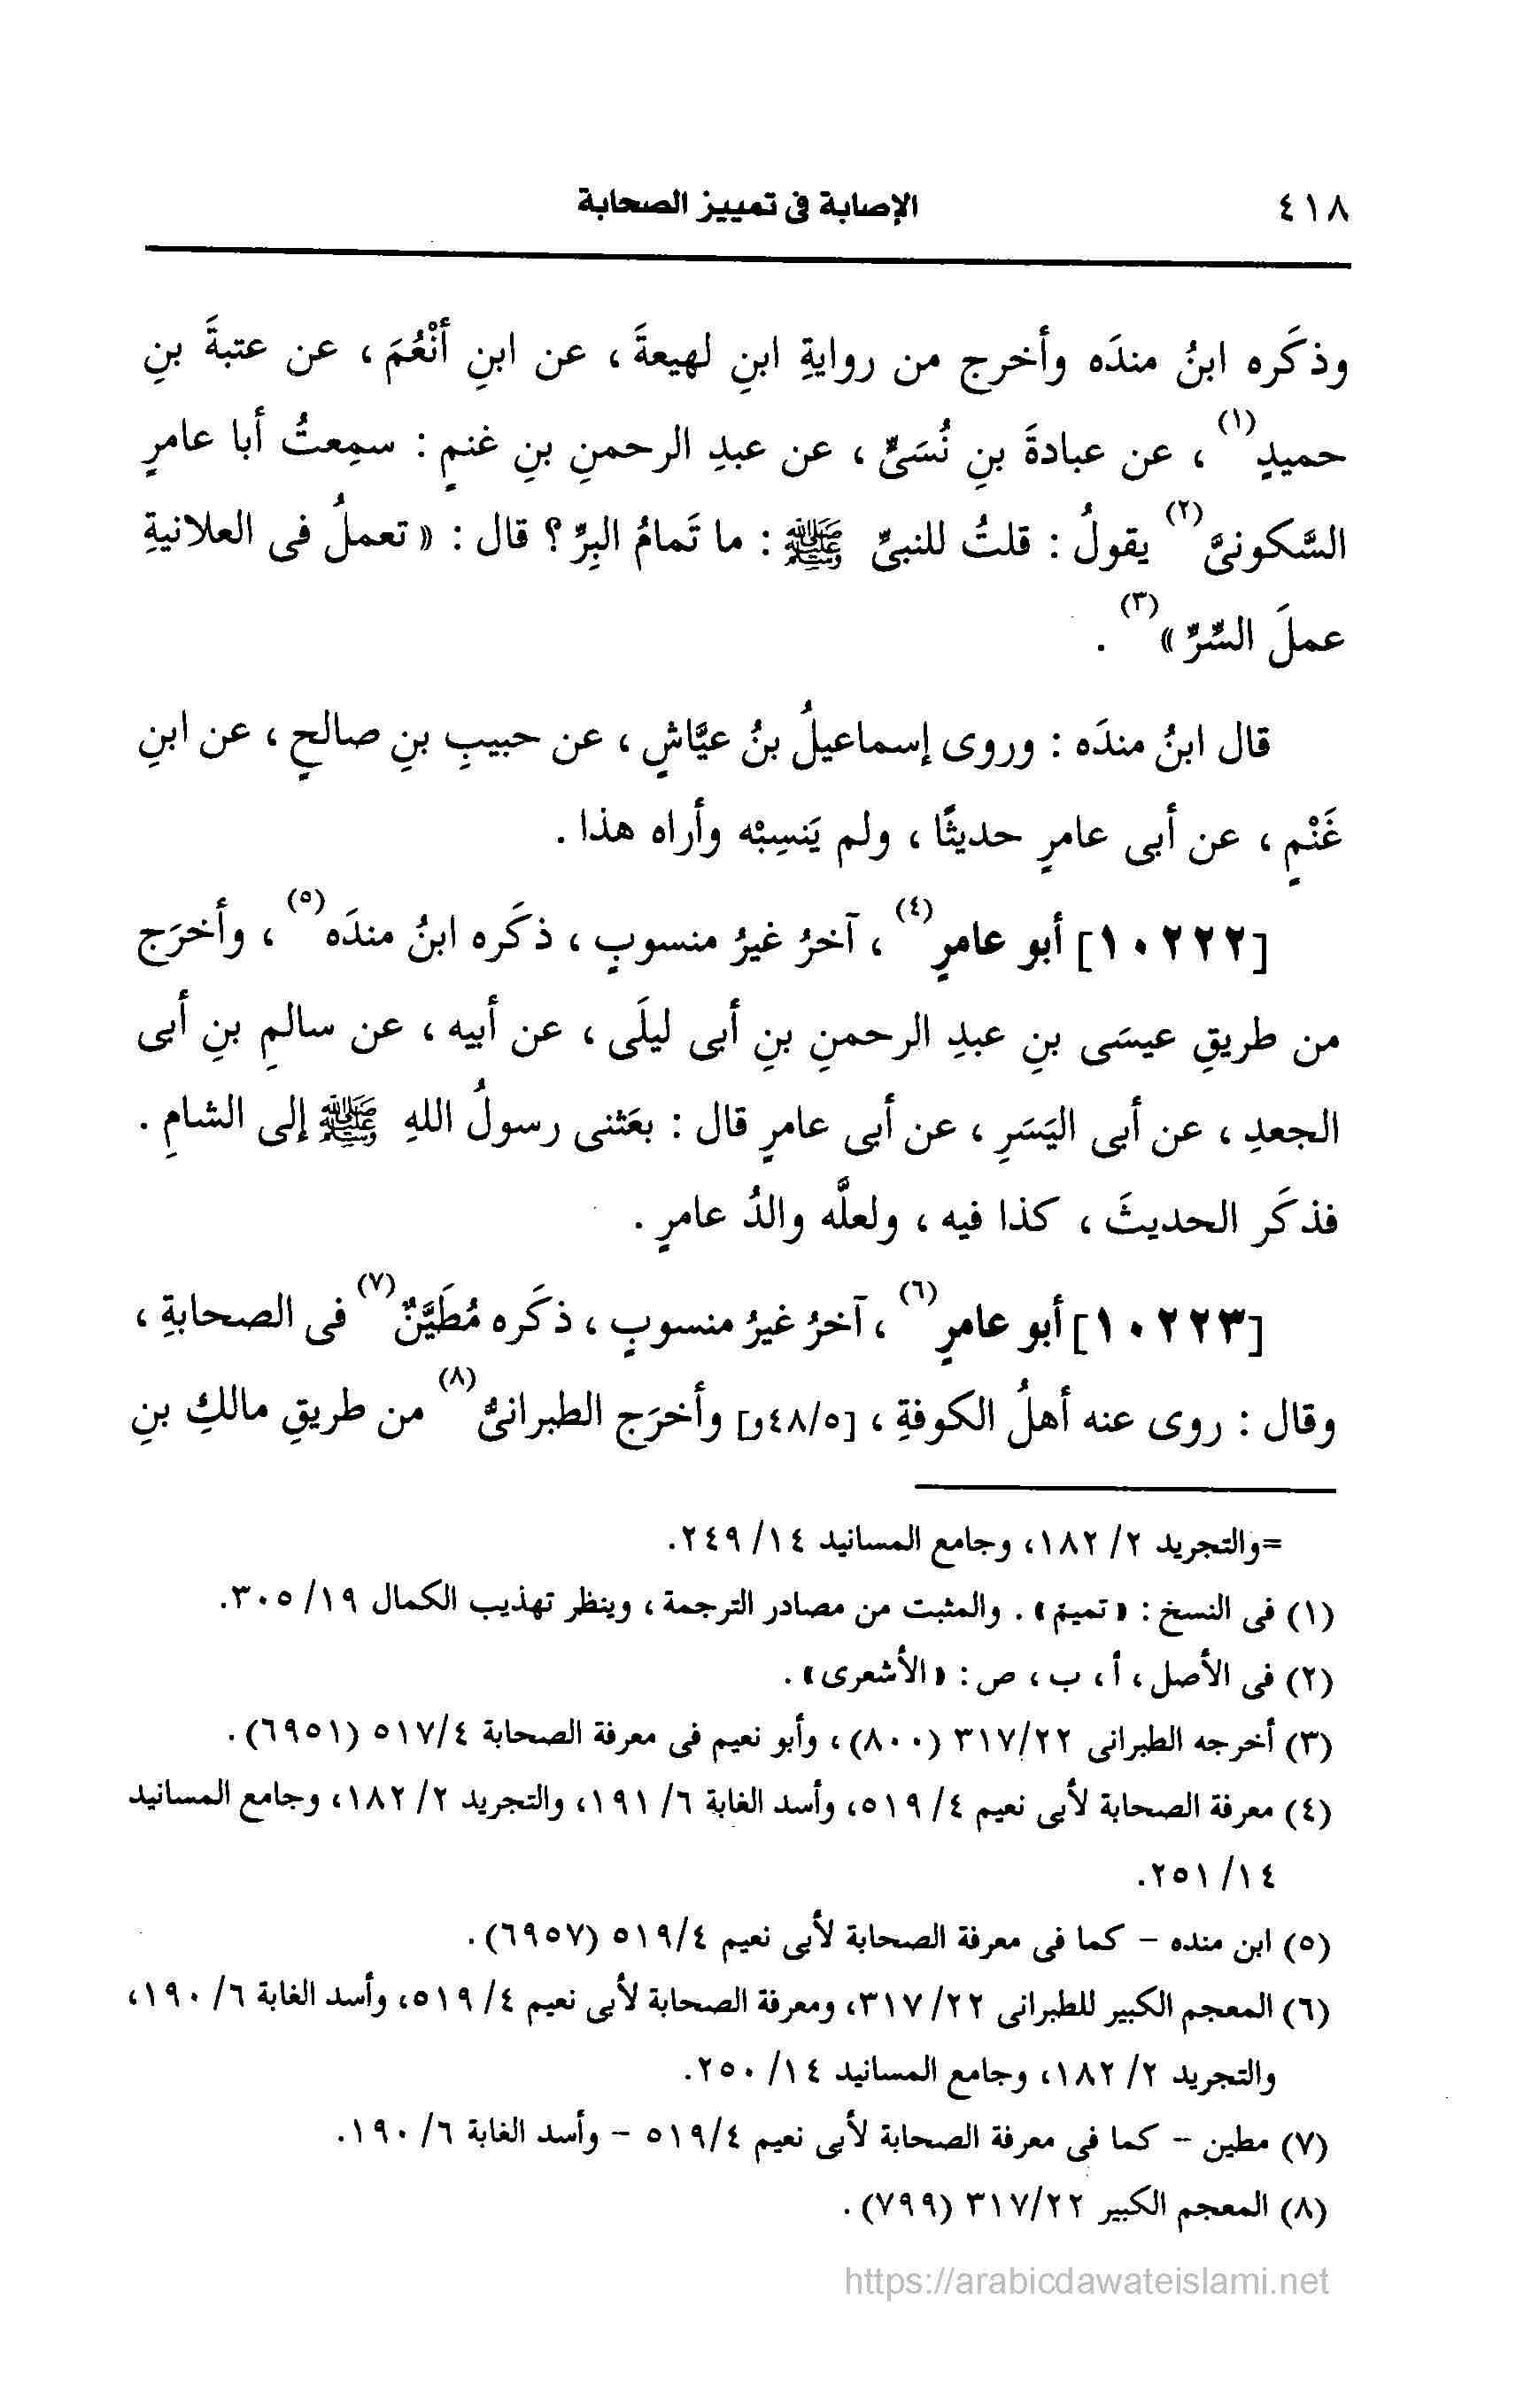 ٤١٨ الإصابة فى تمييز الصحابة
وذكَره ابنُ مندَه وأخرج من روايةِ ابنِ لهيعةَ ، عن ابنِ أنْعُمَ ، عن عتبةَ بنِ
حميدٍ(١) ، عن عبادةَ بنِ نُسَىٍّ ، عن عبدِ الرحمنِ بنِ غنمٍ : سمِعتُ أبا عامرٍ
السَّكونىَّ(٢) يقولُ : قلتُ للنبىِّ ﷺ : ما تَمامُ البِرِّ ؟ قال : « تعملُ فى العلانيةِ
عملَ السِّرِّ »(٣) .
قال ابنُ مندَه : وروى إسماعيلُ بنُ عيَّاشٍ ، عن حبيبِ بنِ صالحٍ ، عن ابنِ
غَنْمٍ ، عن أبى عامرٍ حديثًا ، ولم يَنسِبْه وأراه هذا .
[١٠٢٢٢] أبو عامرٍ(٤) ، آخرُ غيرُ منسوبٍ ، ذكَره ابنُ مندَه(٥) ، وأخرَج
من طريقِ عيسَى بنِ عبدِ الرحمنِ بنِ أبى ليلَى ، عن أبيه ، عن سالمِ بنِ أبى
الجعدِ ، عن أبى اليَسَرِ ، عن أبى عامرٍ قال : بعَثنى رسولُ اللهِ ﷺ إلى الشامِ .
فذكَر الحديثَ ، كذا فيه ، ولعلَّه والدُ عامرٍ .
[١٠٢٢٣] أبو عامرٍ(٦) ، آخرُ غيرُ منسوبٍ ، ذكَره مُطَيَّنٌ(٧) فى الصحابةِ ،
وقال : روى عنه أهلُ الكوفةِ ، [٤٨/٥و] وأخرَج الطبرانىُّ(٨) من طريقِ مالكِ بنِ
=والتجريد ٢/ ١٨٢، وجامع المسانيد ١٤/ ٢٤٩.
(١) فى النسخ : « تميم » . والمثبت من مصادر الترجمة ، وينظر تهذيب الكمال ١٩/ ٣٠٥.
(٢) فى الأصل ، أ ، ب ، ص : « الأشعرى » .
(٣) أخرجه الطبرانى ٣١٧/٢٢ (٨٠٠) ، وأبو نعيم فى معرفة الصحابة ٥١٧/٤ (٦٩٥١) .
(٤) معرفة الصحابة لأبى نعيم ٤/ ٥١٩، وأسد الغابة ٦/ ١٩١، والتجريد ٢/ ١٨٢، وجامع المسانيد
١٤/ ٢٥١.
(٥) ابن منده - كما فى معرفة الصحابة لأبى نعيم ٥١٩/٤ (٦٩٥٧) .
(٦) المعجم الكبير للطبرانى ٢٢/ ٣١٧، ومعرفة الصحابة لأبى نعيم ٤/ ٥١٩، وأسد الغابة ٦/ ١٩٠،
والتجريد ٢/ ١٨٢، وجامع المسانيد ١٤/ ٢٥٠.
(٧) مطين - كما فى معرفة الصحابة لأبى نعيم ٥١٩/٤ - وأسد الغابة ٦/ ١٩٠.
(٨) المعجم الكبير ٣١٧/٢٢ (٧٩٩) .
https://arabicdawateislami.net